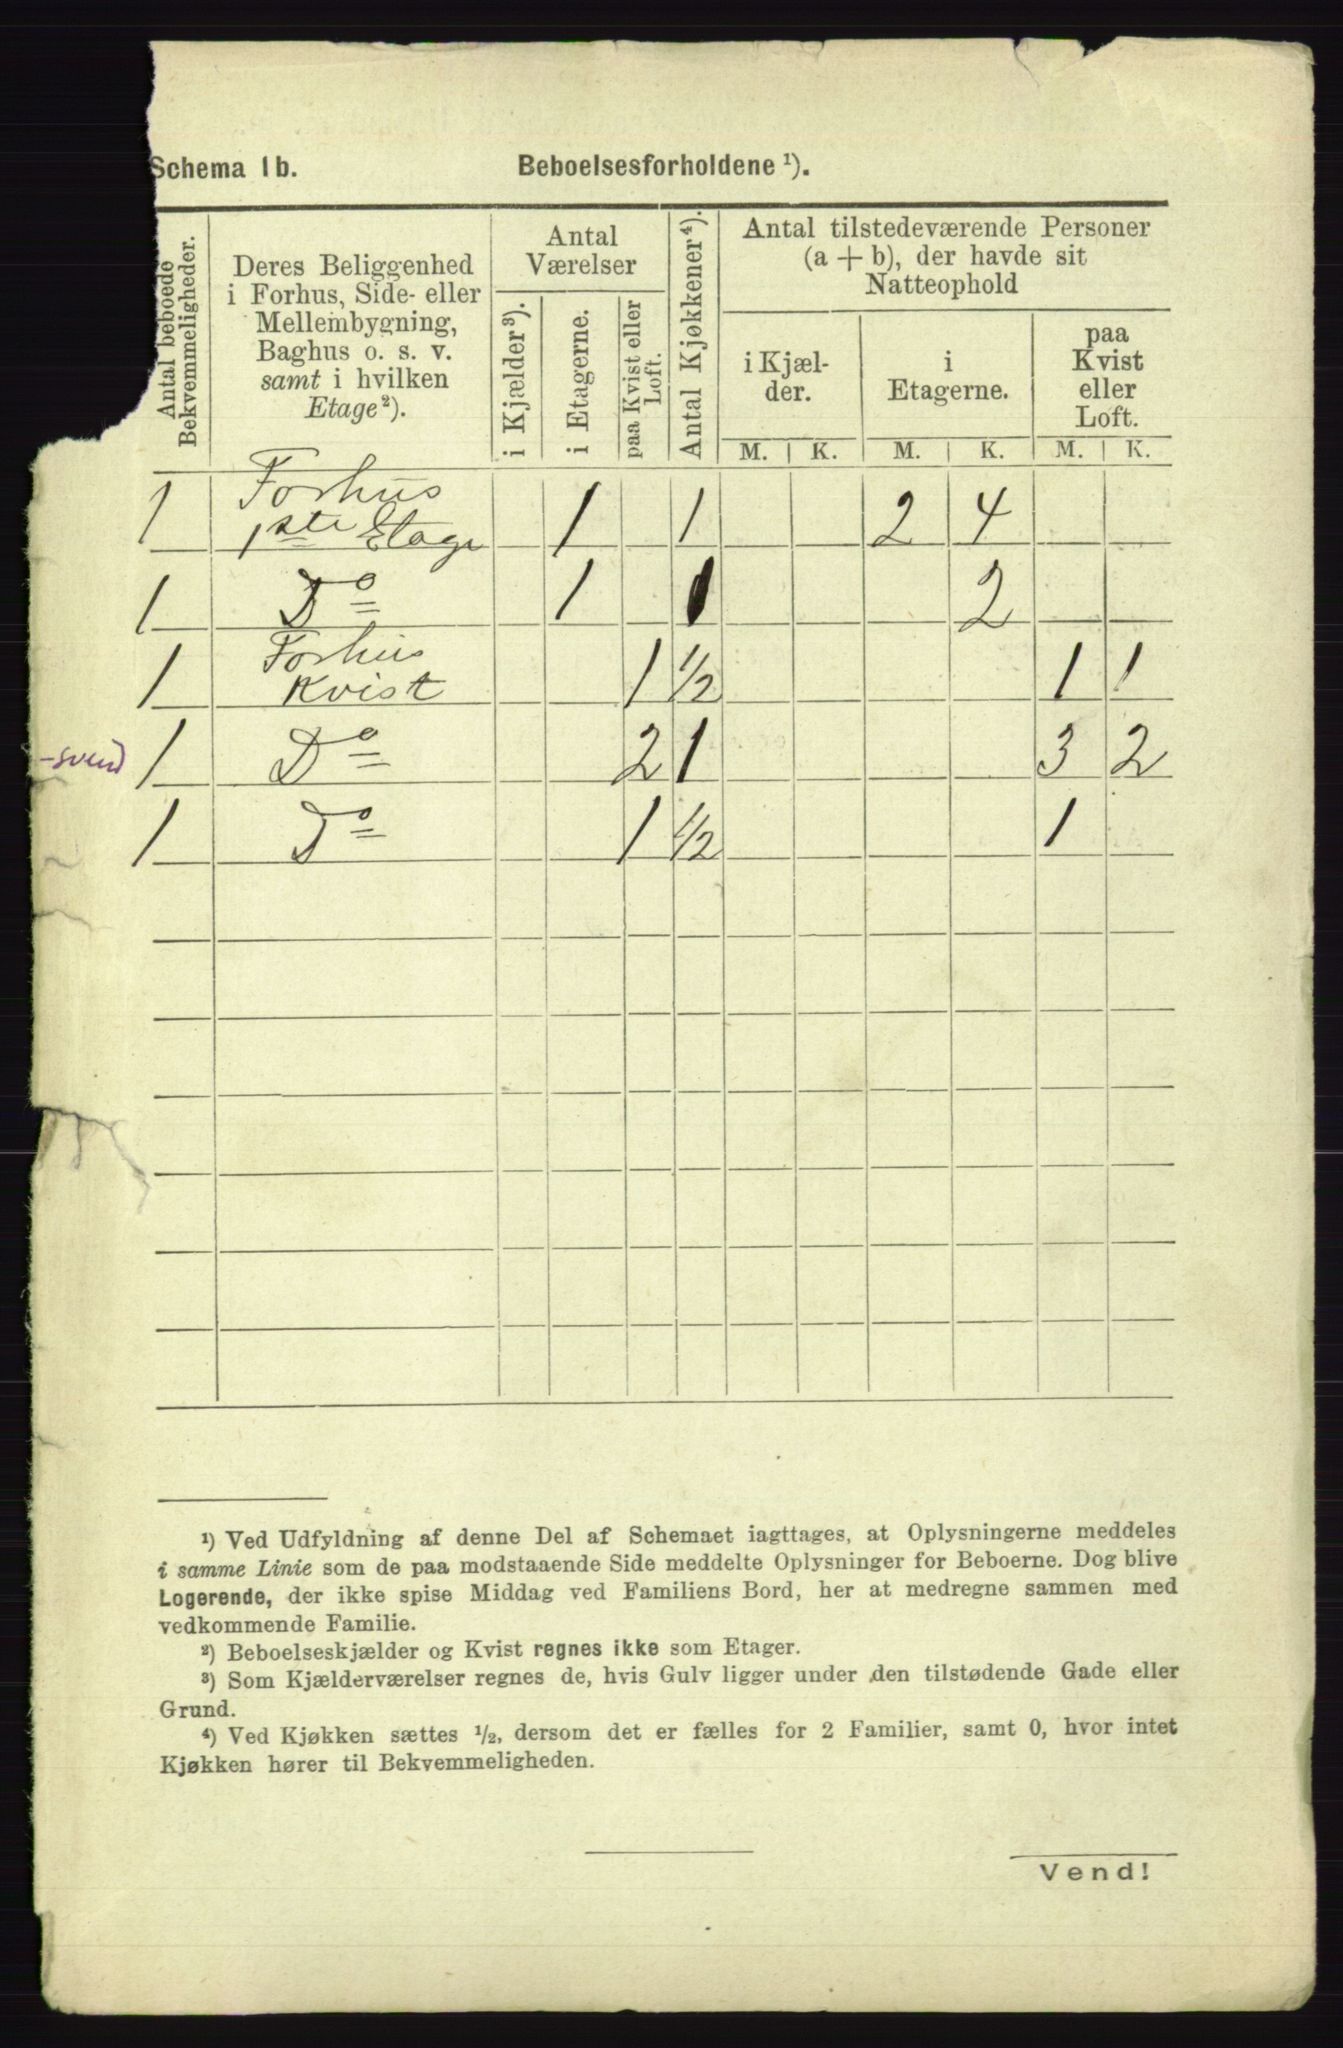 Schema 1b. Beboelsesforholdene ¹).
Antal beboede
Bekvemmeligheder.
Deres Beliggenhed
i Forhus, Side- eller
Mellembygning,
Baghus o. s. v.
samt i hvilken
Etage²).
Antal
Værelser
i Kjælder³).
i Etagerne.
paa Kvist eller
Loft.
Antal Kjøkkener⁴).
Antal tilstedeværende Personer
(a + b), der havde sit
Natteophold
i Kjæl-
der.
i
Etagerne.
paa
Kvist
eller
Loft.
M. K. M. K. M. K.
1 Forhus
1ste Etage 1 1 2 4
1 Do 1 1 2
1 Forhus
Kvist 1 1/2 1 1
-svend 1 Do 2 1 3 2
1 Do 1 1/2 1
¹) Ved Udfyldning af denne Del af Schemaet iagttages, at Oplysningerne meddeles
i samme Linie som de paa modstaaende Side meddelte Oplysninger for Beboerne. Dog blive
Logerende, der ikke spise Middag ved Familiens Bord, her at medregne sammen med
vedkommende Familie.
²) Beboelseskjælder og Kvist regnes ikke som Etager.
³) Som Kjælderværelser regnes de, hvis Gulv ligger under den tilstødende Gade eller
Grund.
⁴) Ved Kjøkken sættes ¹/₂, dersom det er fælles for 2 Familier, samt 0, hvor intet
Kjøkken hører til Bekvemmeligheden.
Vend!